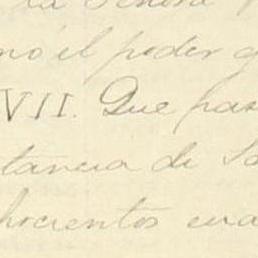 la Señora
mó el poder q
VII. Que pas
tancia de Sa
chocientos cua